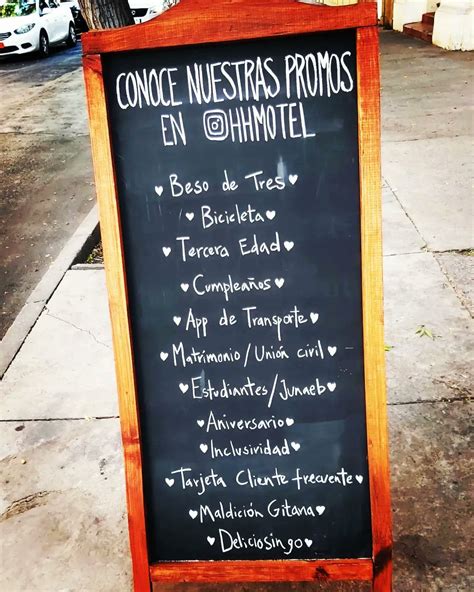 CONOCE NUESTRAS PROMOS
EN @HHMOTEL
Beso de Tres
Bicicleta
Tercera Edad
Cumpleaños
App de Transporte
Matrimonio/Unión civil
Estudiantes/Junaeb
Aniversario
Inclusividad
Tarjeta Cliente frecuente
Maldición Gitana
Deliciosingo